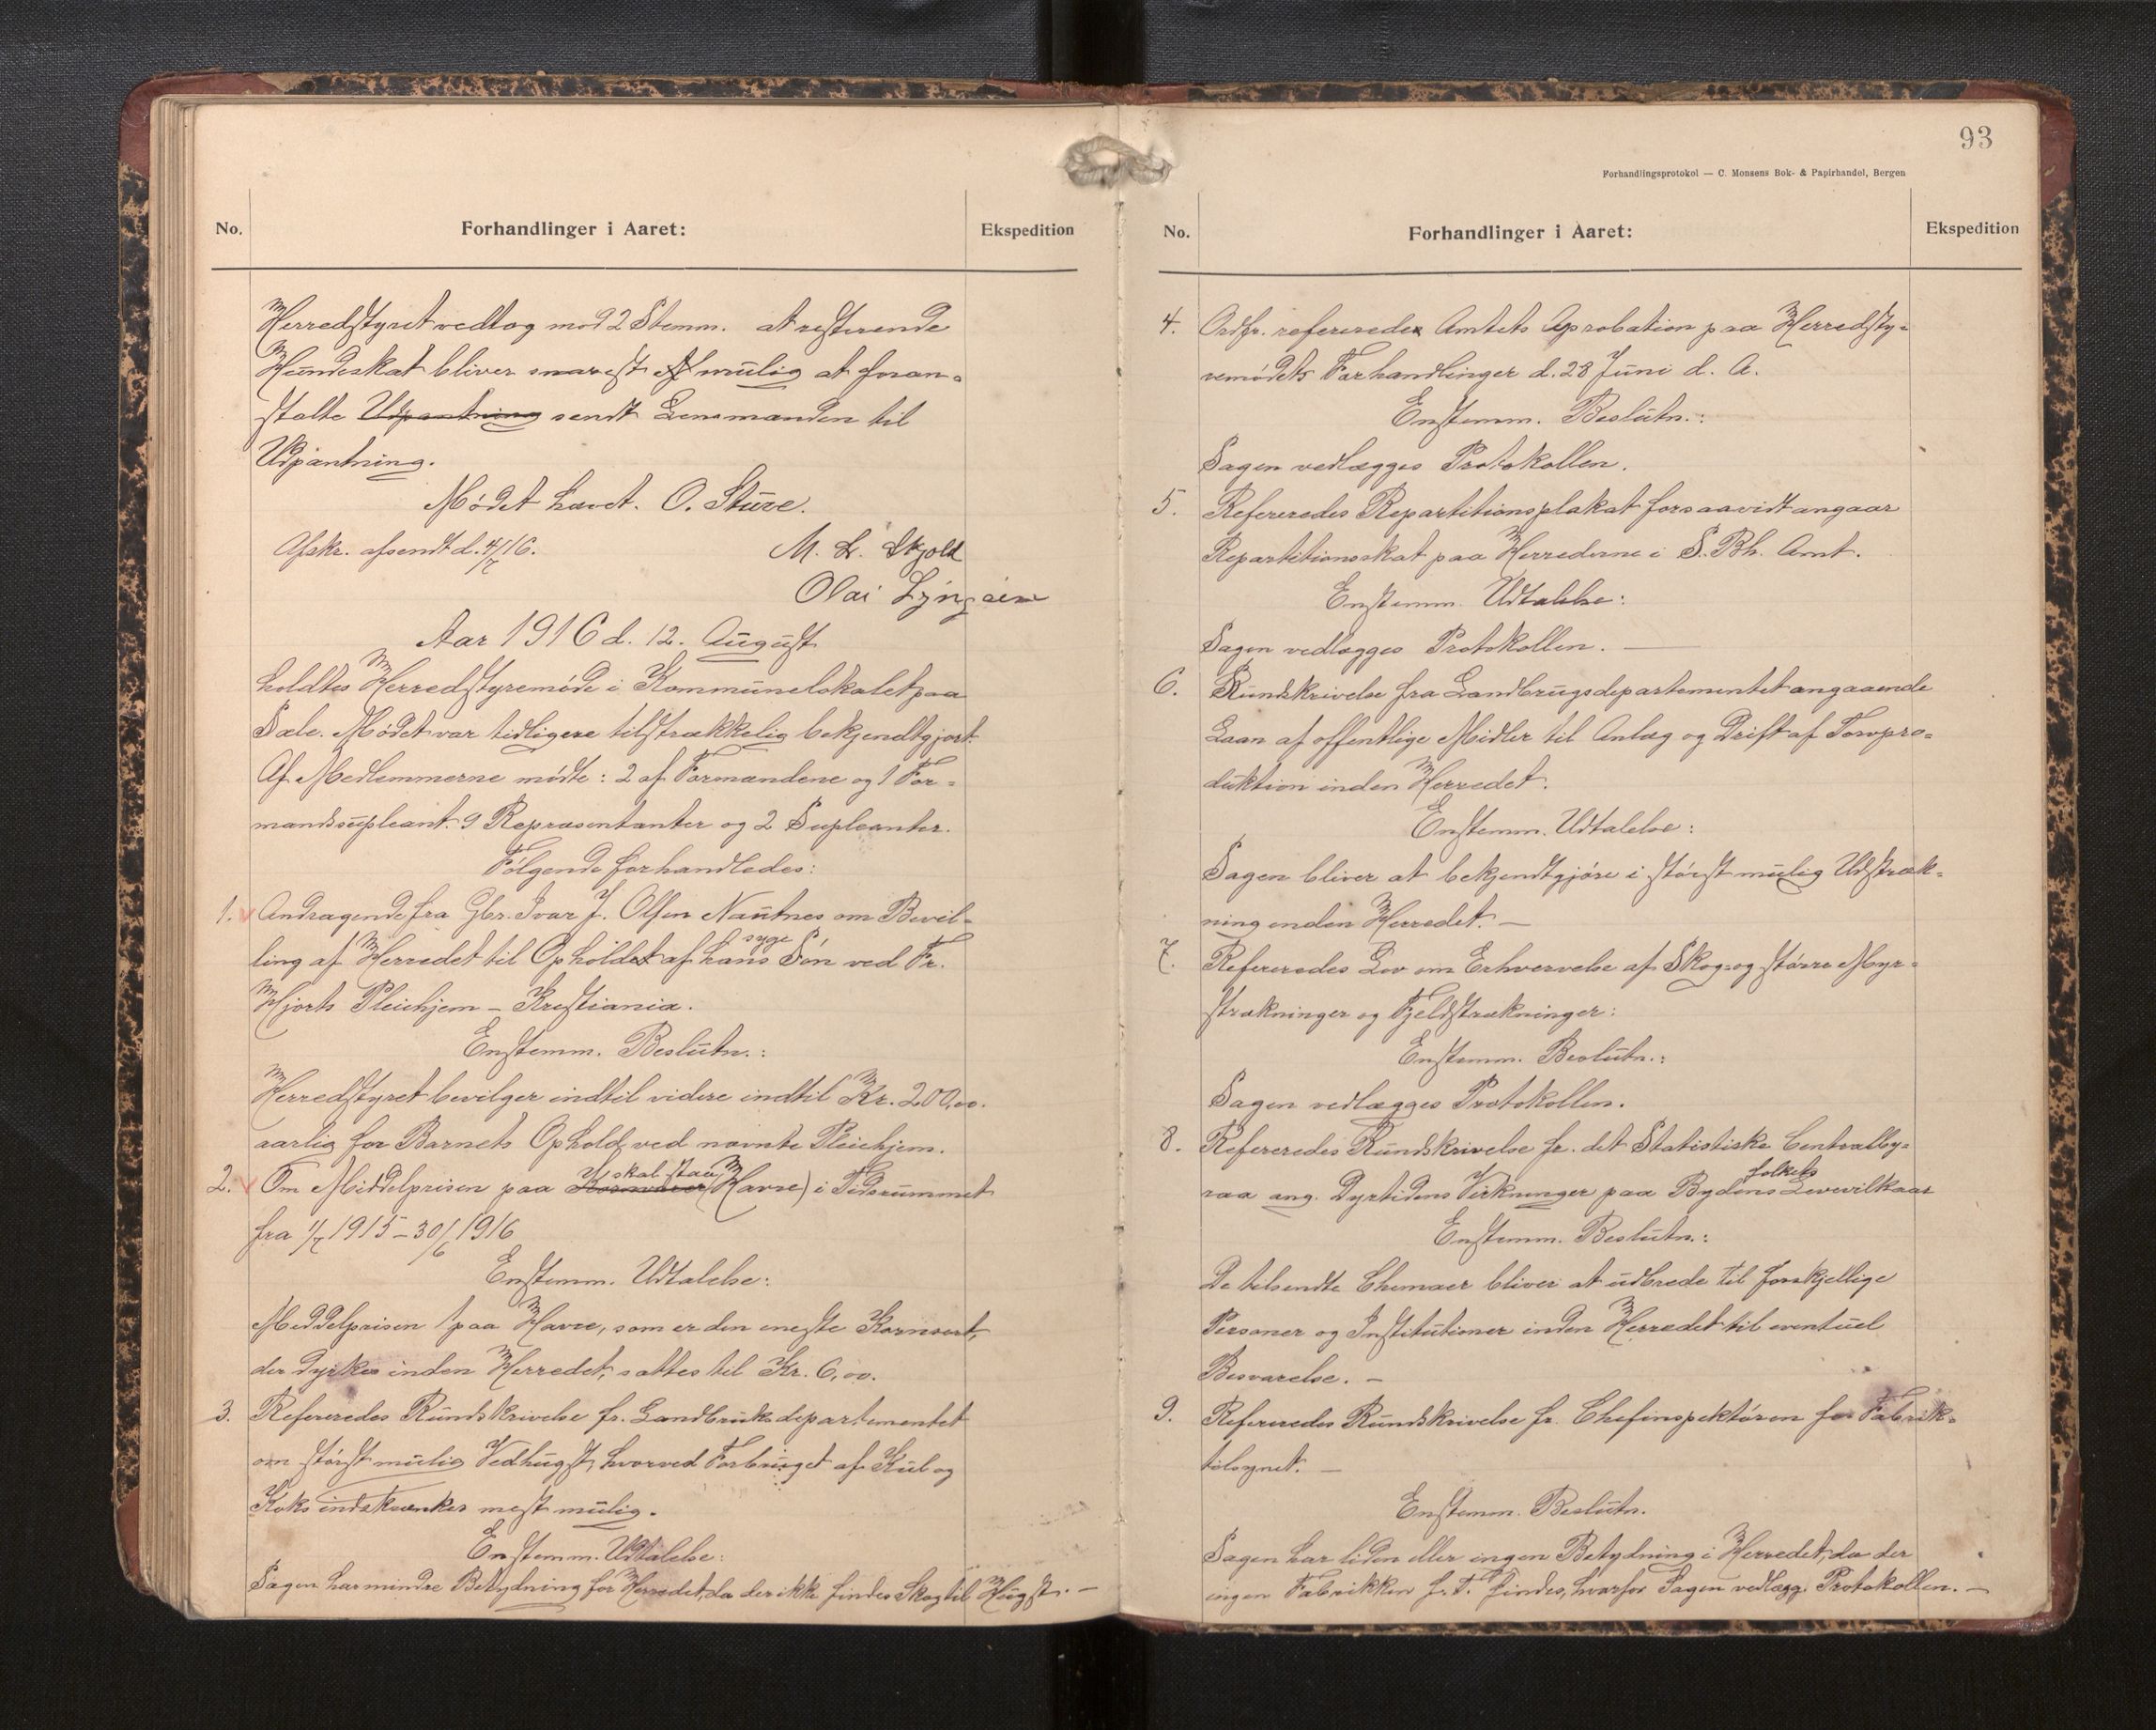 No.
Forhandlinger i Aaret:
Ekspedition
Herredstyret vedtog mod 2 Stemm. at resterende
Hundeskat bliver snarest mulig at foran-
stalte Udpantning sendt Lensmanden til
Udpantning.
Mødet hævet. O. Sture.
Afskr. afsendt d. 4/7 16.
M. L. Skjold
Olai Lyngøien
Aar 1916 d. 12. August
holdtes Herredstyremøde i Kommunelokalet paa
Sæle. Mødet var tidligere tilstrækkelig bekjendtgjort.
Af Medlemmerne mødte: 2 af Formændene og 1 For-
mandssupleant. 9 Repræsentanter og 2 Supleanter.
Følgende forhandledes:
1. Andragende fra Gbr. Ivar J. Olsen Nautnes om Bevil-
ling af Herredet til Opholdet af hans syge Søn ved Fr.
Hjorts Pleiehjem – Kristiania.
Enstemm. Beslutn.:
Herredstyret bevilger indtil videre indtil Kr. 200,00.
aarlig for Barnets Ophold ved nævnte Pleiehjem.
skal staa
2. Om Middelprisen paa Kornvarer (Havre) i Tidsrummet
fra 1/7 1915 – 30/6 1916
Enstemm. Udtalelse:
Meddelprisen paa Havre, som er den eneste Kornsort,
der dyrkes inden Herredet, sættes til Kr. 6,00.
3. Refereredes Rundskrivelse fr. Landbruksdepartementet
om størst mulig Vedhugst, hvorved Forbruget af Kul og
Koks indskrænkes mest mulig.
Enstemm. Udtalelse:
Sagen har mindre Betydning for Herredet, da der ikke findes Skog til Hugst. –
93
Forhandlingsprotokol — C. Monsens Bok- & Papirhandel, Bergen
No.
Forhandlinger i Aaret:
Ekspedition
4. Ordfr. refererede Amtets Aprobation paa Herredsty-
remødets Forhandlinger d. 28 Juni d. A.
Enstemm. Beslutn.:
Sagen vedlægges Protokollen.
5. Refereredes Repartitionsplakat forsaavidt angaar
Repartitionsskat paa Herrederne i S. Bh. Amt.
Enstemm. Udtalelse:
Sagen vedlægges Protokollen. —
6. Rundskrivelse fra Landbrugsdepartementet angaaende
Laan af offentlige Midler til Anlæg og Drift af Torvpro-
duktion inden Herredet.
Enstemm. Udtalelse:
Sagen bliver at bekjendtgjøre i størst mulig Udstræk-
ning inden Herredet. –
7. Refereredes Lov om Erhvervelse af Skog- og større Myr-
strækninger og Fjeldstrækninger:
Enstemm. Beslutn.:
Sagen vedlægges Protokollen.
8. Refereredes Rundskrivelse fr. det Statistiske Centralby-
folkets
raa ang. Dyrtidens Virkninger paa Bydens Levevilkaar
Enstemm. Beslutn.:
De tilsendte Chemaer bliver at udbrede til forskjellige
Personer og Institutioner inden Herredet til eventuel
Besvarelse. –
9. Refereredes Rundskrivelse fr. Chefinspektøren for Fabrik-
tilsynet. –
Enstemm. Beslutn.
Sagen har liden eller ingen Betydning i Herredet, da der
ingen Fabrikker f. T. findes, hvorfor Sagen vedlægg. Protokollen. –